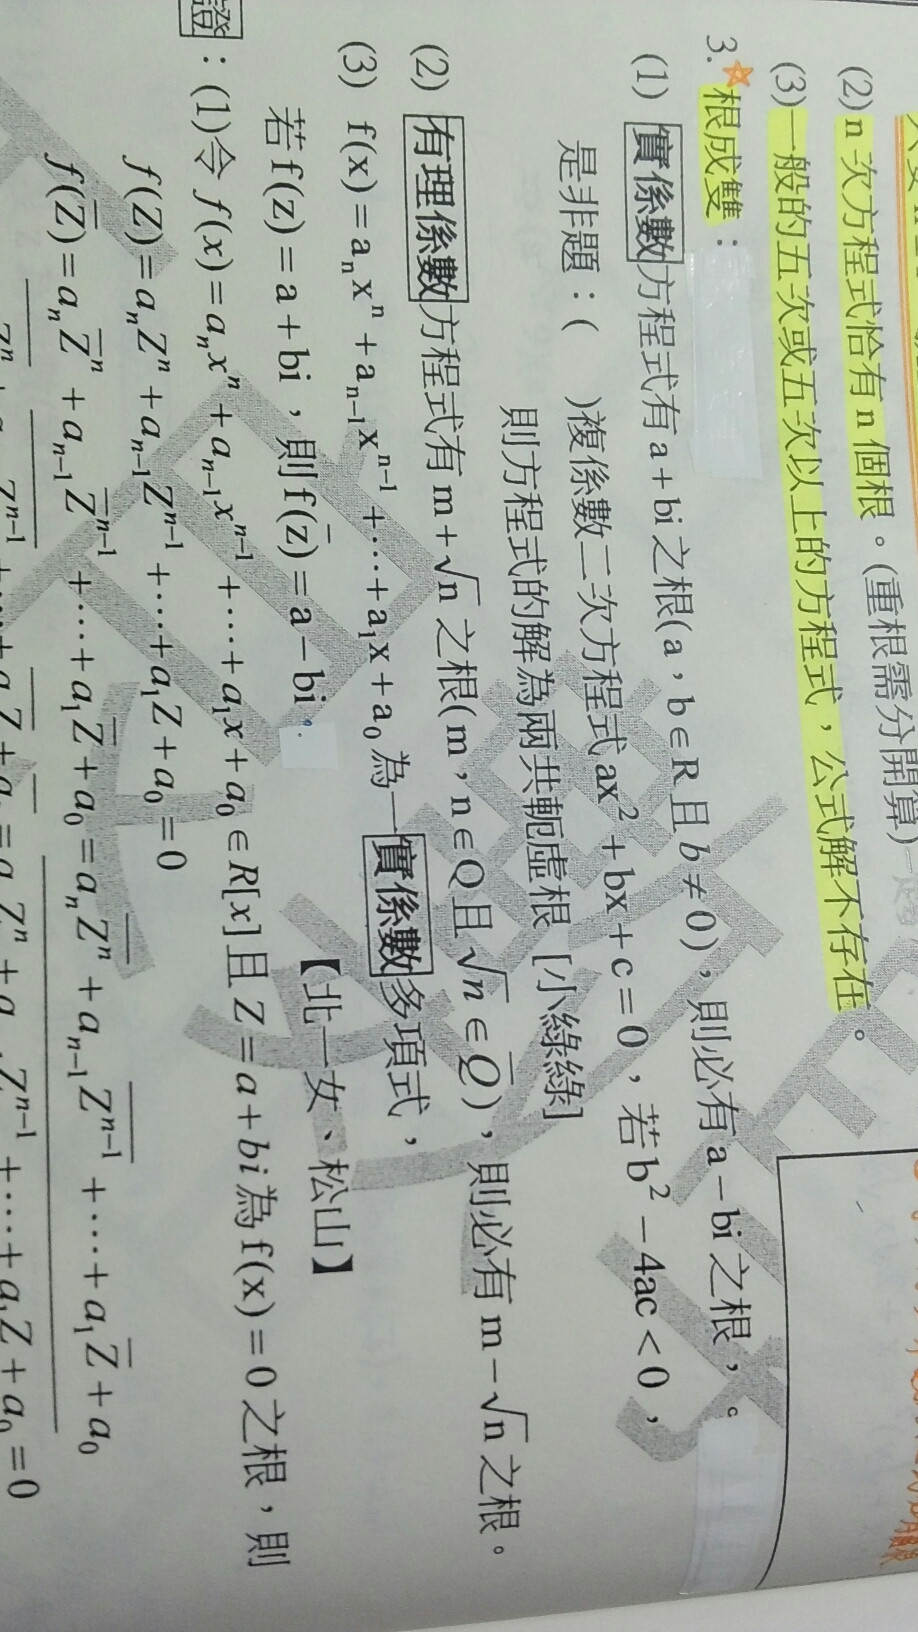 (2) n 次方程式恰有 n 個根。(重根需分開算)
(3) 一般的五次或五次以上的方程式，公式解不存在。
3. ☆根成雙：
(1) 實係數方程式有 a + bi 之根(a，b ∈ R 且 b ≠ 0)，則必有 a − bi 之根，。
是非題：( )複係數二次方程式 ax² + bx + c = 0，若 b² − 4ac < 0，
則方程式的解為兩共軛虛根 [小綠綠]
(2) 有理係數方程式有 m + √n 之根(m，n ∈ Q 且 √n ∈ Q̅)，則必有 m − √n 之根。
(3) f(x) = aₙxⁿ + aₙ₋₁xⁿ⁻¹ + ⋯ + a₁x + a₀ 為一實係數多項式，
若 f(z) = a + bi，則 f(z̅) = a − bi。 【北一女、松山】
證：(1)令 f(x) = aₙxⁿ + aₙ₋₁xⁿ⁻¹ + ⋯ + a₁x + a₀ ∈ R[x] 且 Z = a + bi 為 f(x) = 0 之根，則
f(Z) = aₙZⁿ + aₙ₋₁Zⁿ⁻¹ + ⋯ + a₁Z + a₀ = 0
f(Z̅) = aₙZ̅ⁿ + aₙ₋₁Z̅ⁿ⁻¹ + ⋯ + a₁Z̅ + a₀ = aₙZ̅ⁿ̅ + aₙ₋₁Z̅ⁿ̅⁻̅¹̅ + ⋯ + a₁Z̅ + a₀